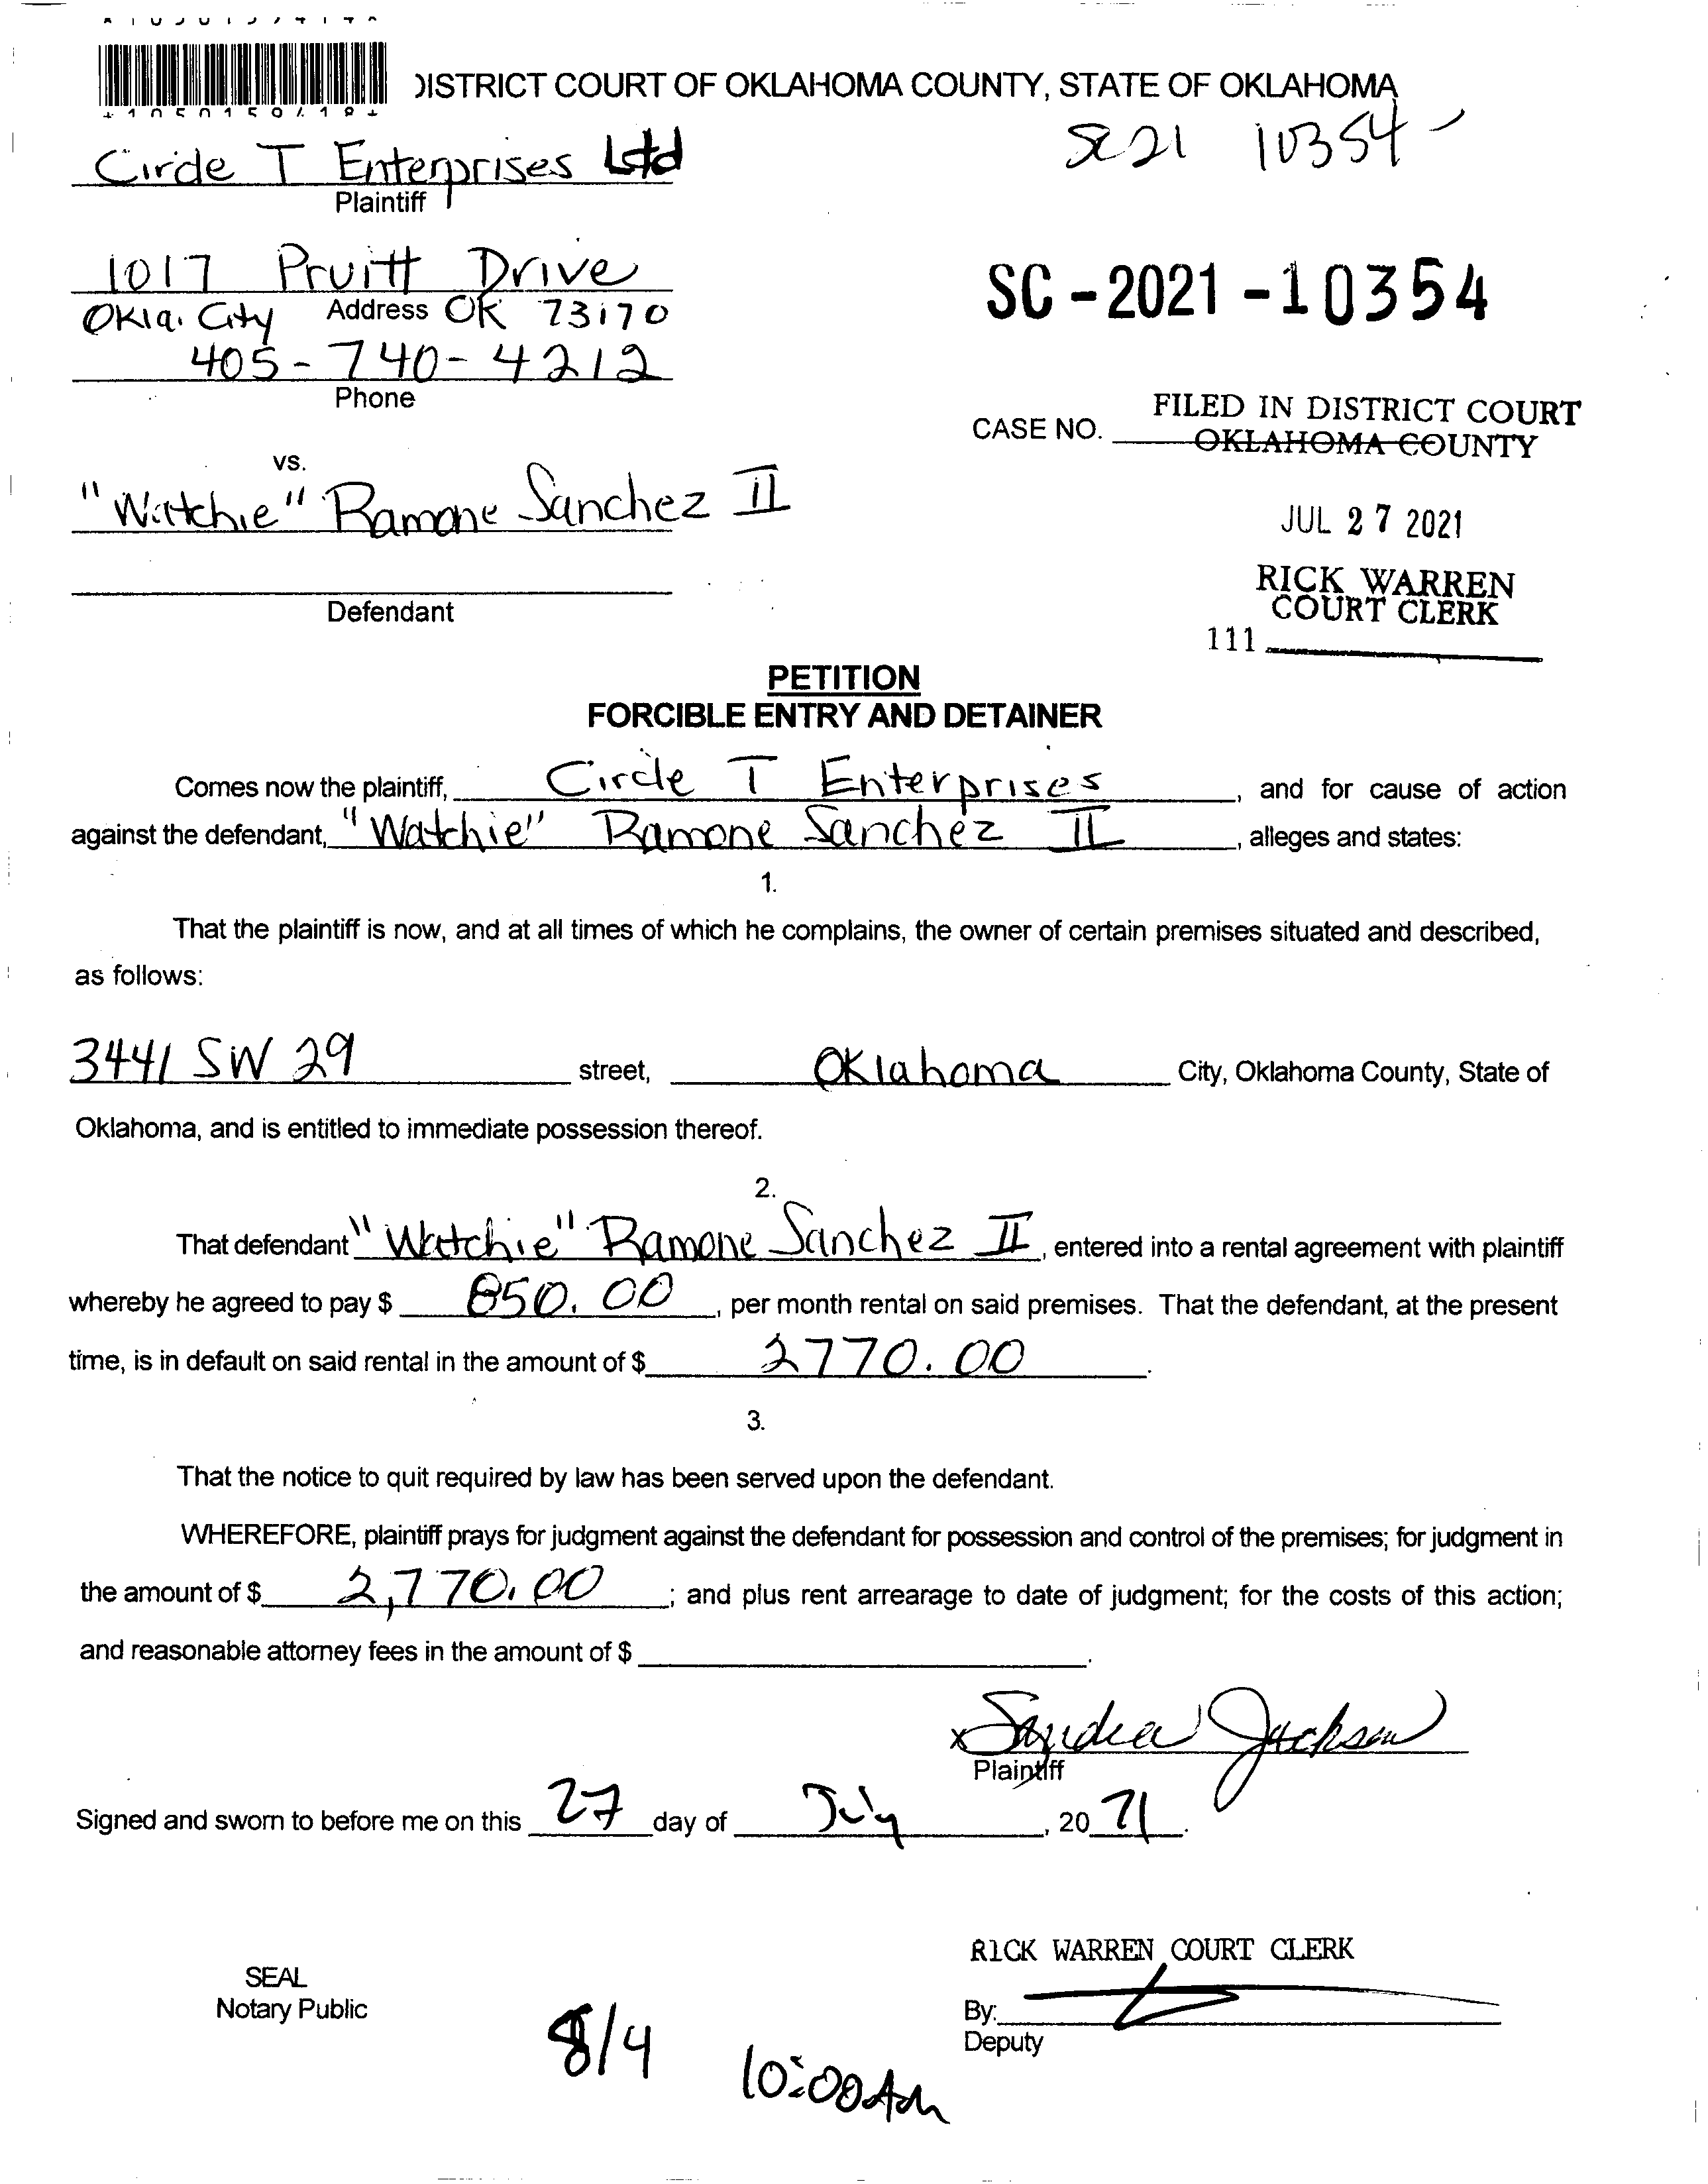 DISTRICT COURT OF OKLAHOMA COUNTY, STATE OF OKLAHOMA
SC21 10354
Circle T Enterprises Ltd
Plaintiff
1017 Pruitt Drive
Address
Okla. City OK 73170
405-740-4212
Phone
SC-2021-10354
CASE NO.
FILED IN DISTRICT COURT
OKLAHOMA COUNTY
vs.
"Watchie" Ramone Sanchez II
JUL 27 2021
RICK WARREN
COURT CLERK
Defendant
111
PETITION
FORCIBLE ENTRY AND DETAINER
Comes now the plaintiff, Circle T Enterprises, and for cause of action
against the defendant, "Watchie" Ramone Sanchez II, alleges and states:
1.
That the plaintiff is now, and at all times of which he complains, the owner of certain premises situated and described,
as follows:
3441 SW 29 street, Oklahoma City, Oklahoma County, State of
Oklahoma, and is entitled to immediate possession thereof.
2.
That defendant "Watchie" Ramone Sanchez II, entered into a rental agreement with plaintiff
whereby he agreed to pay $ 850.00, per month rental on said premises. That the defendant, at the present
time, is in default on said rental in the amount of $ 2770.00.
3.
That the notice to quit required by law has been served upon the defendant.
WHEREFORE, plaintiff prays for judgment against the defendant for possession and control of the premises; for judgment in
the amount of $ 2,770.00; and plus rent arrearage to date of judgment; for the costs of this action;
and reasonable attorney fees in the amount of $ .
x Sandra Jackson
Plaintiff
Signed and sworn to before me on this 27 day of July, 20 21.
RICK WARREN COURT CLERK
SEAL
Notary Public
By:
Deputy
8/4 10:00 Am